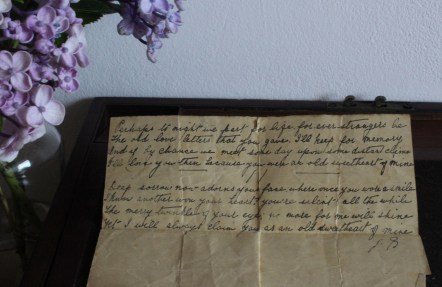 Perhaps to night we part for life, for ever strangers be
The old love letter that you gave I'll keep for memory
And if by chance we meet some day upon some distant
I'll love you then because you were an old sweetheart of mine

Deep sorrow now adorns your face where once you wore a smile
another won your heart, you're all the while
the merry twinkle of your eyes no more for me will shine
Yet I will always claim you as an old sweetheart of mine